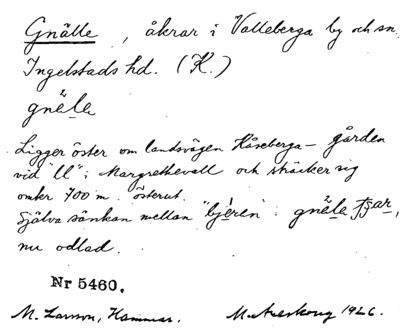 Gnälle, åkrar i Valleberga by och sn
Ingelstads hd. (K.)
gnèle
Ligger öster om landsvägen Kåseberga - gården
vid "ll" i Margrethevall och sträcker sig
omkr 700 m. österut.
Själva sänkan mellan "bjèren": gnèle
nu odlad.
Nr 5460.
M. Larson, Hammar. 1926.